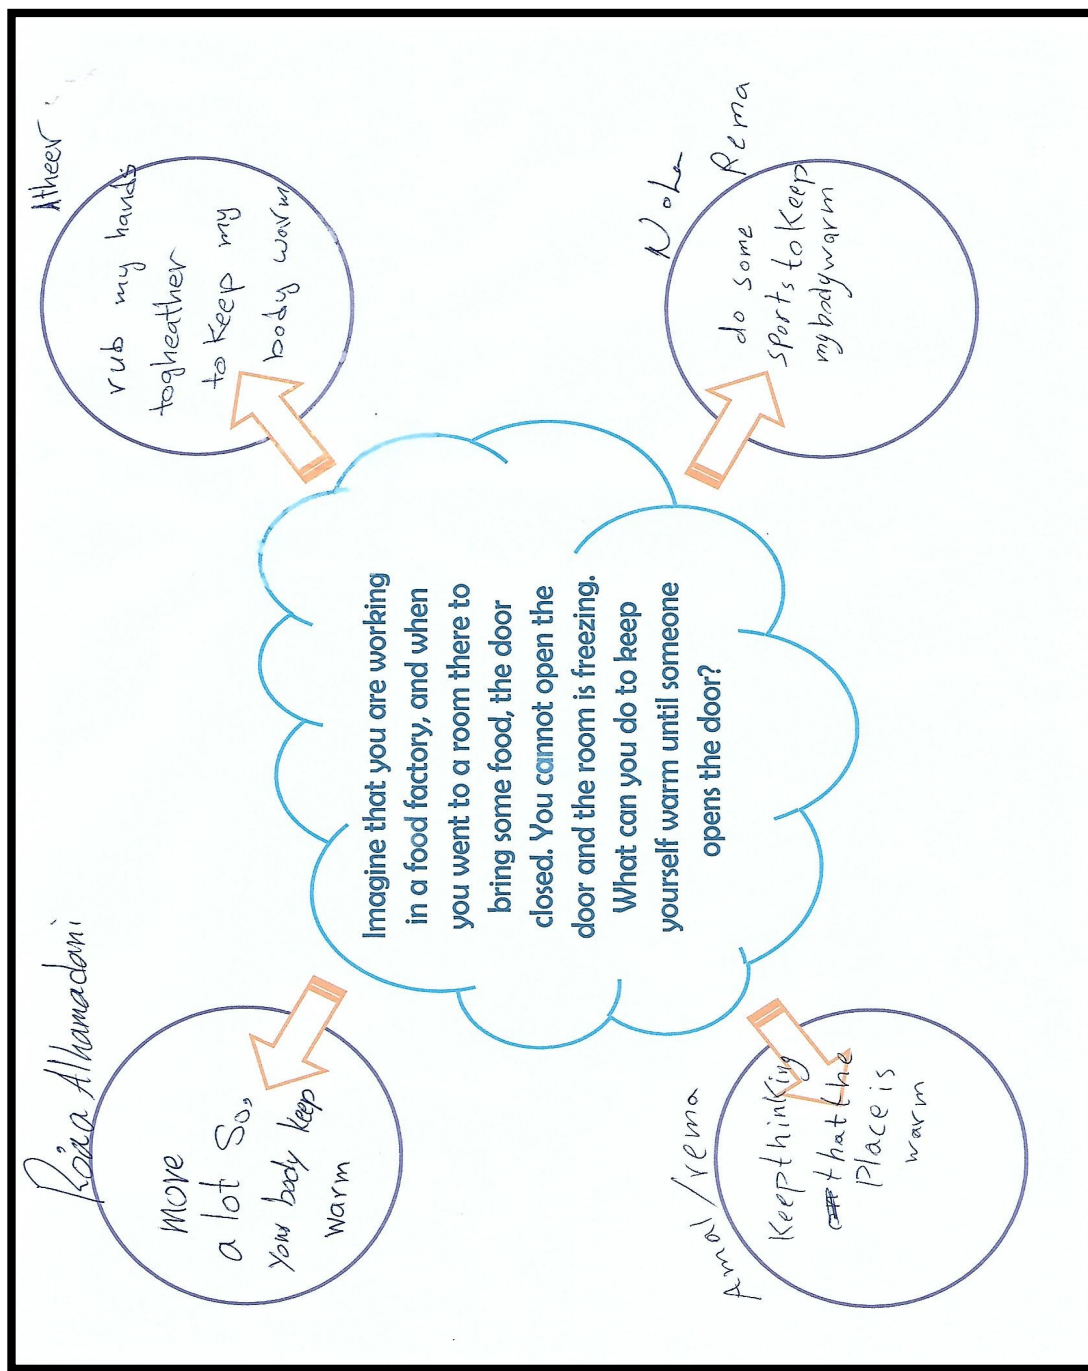 Imagine that you are working
in a food factory, and when
you went to a room there to
bring some food, the door
closed. You cannot open the
door and the room is freezing.
What can you do to keep
yourself warm until someone
opens the door?
Roaa Alhamadani
move
a lot So,
your body keep
warm
Atheer
rub my hands
togheather
to keep my
body warm
Amal/rema
Keep thinking
that the
Place is
warm
Noha
Rema
do some
sports to keep
my body warm